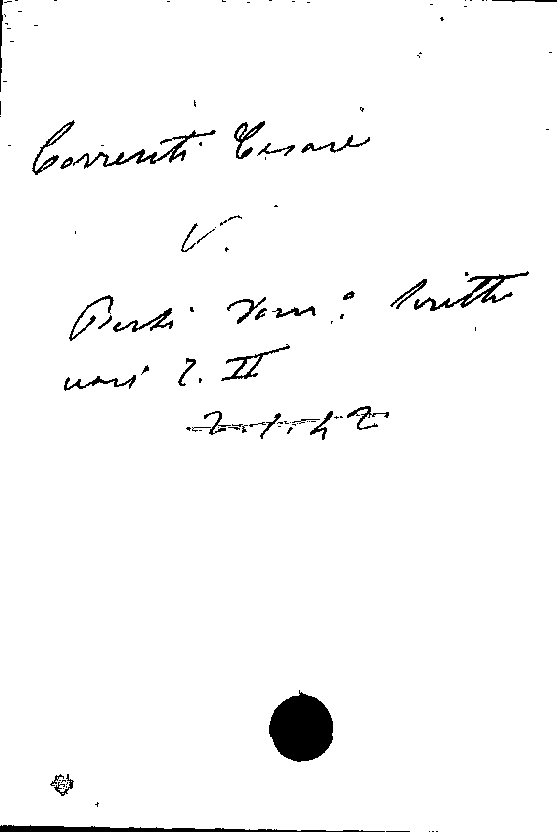 Correnti Cesare
V.
Berti Dom.° Scritti
vari 2. II
2.1.42